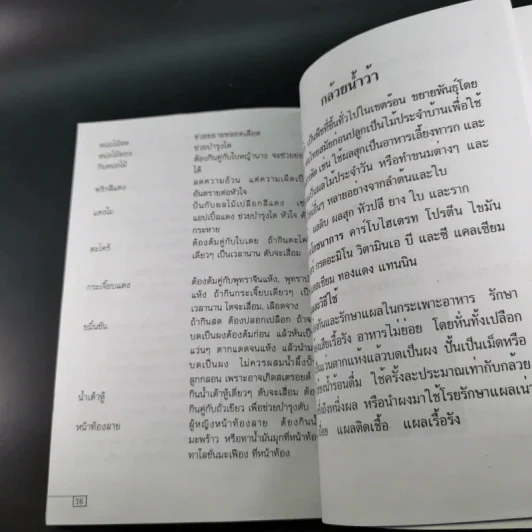 ช่วยขยายหลอดเลือด
หน่อไม้สด ช่วยบำรุงไต
หน่อไม้ดอง ต้องกินคู่กับใบหญ้านาง จะช่วยย่อย
กินหน่อไม้ ได้
พริกสีแดง ลดความอ้วน แต่ความเผ็ดเป็น
อันตรายต่อหัวใจ
แตงโม ปั่นกับผลไม้เปลือกสีแดง เช่น
แอปเปิ้ลแดง ช่วยบำรุงไต หัวใจ
กระหาย
ตะไคร้ ต้องต้มคู่กับใบเตย ถ้ากินตะไคร้
เดี่ยวๆ เป็นเวลานาน ตับจะเสื่อม
กระเจี๊ยบแดง ต้องต้มคู่กับพุทราจีนแห้ง, พุทรา
แห้ง ถ้ากินกระเจี๊ยบเดี่ยวๆ
เวลานาน ไตจะเสื่อม, เลือดจาง
ขมิ้นชัน ถ้ากินสด ต้องปลอกเปลือก
บดเป็นผงต้องต้มก่อน แล้วหั่นเป็น
แว่นๆ ตากแดดจนแห้ง แล้วนำมา
บดเป็นผง ไม่ควรผสมน้ำผึ้งปั้น
ลูกกลอน เพราะอาจเกิดสเตรอยด์
น้ำเต้าหู้ กินน้ำเต้าหู้เดี่ยวๆ ตับจะเสื่อม ต้อง
กินคู่กับถั่วเขียว เพื่อช่วยบำรุงตับ
หน้าท้องลาย ผู้หญิงหน้าท้องลาย ต้องกินน้ำ
มะพร้าว หรือทาน้ำมันมุกที่หน้าท้อง
ทาโลชั่นมะเฟือง ที่หน้าท้อง
76
กล้วยน้ำว้า
เป็นพืชที่ขึ้นทั่วไปในเขตร้อน ขยายพันธุ์โดย
ไทยสมัยก่อนปลูกเป็นไม้ประจำบ้านเพื่อใช้
เช่น ใช้ผลสุกเป็นอาหารเลี้ยงทารก และ
เป็นผลไม้ประจำวัน หรือทำขนมต่างๆ และ
อื่นๆ หลายอย่างจากลำต้นและใบ
ผลดิบ ผลสุก หัวปลี ยาง ใบ และราก
โภชนาการ คาร์โบไฮเดรท โปรตีน ไขมัน
กรดอะมิโน วิตามินเอ บี และซี แคลเซียม
ทองแดง แทนนิน
วิธีใช้
และรักษาแผลในกระเพาะอาหาร รักษา
เรื้อรัง อาหารไม่ย่อย โดยหั่นทั้งเปลือก
ตากแห้งแล้วบดเป็นผง ปั้นเป็นเม็ดหรือ
น้ำร้อนดื่ม ใช้ครั้งละประมาณเท่ากับกล้วย
หนึ่งผล หรือนำผงมาใช้โรยรักษาแผลเน่า
แผลติดเชื้อ แผลเรื้อรัง